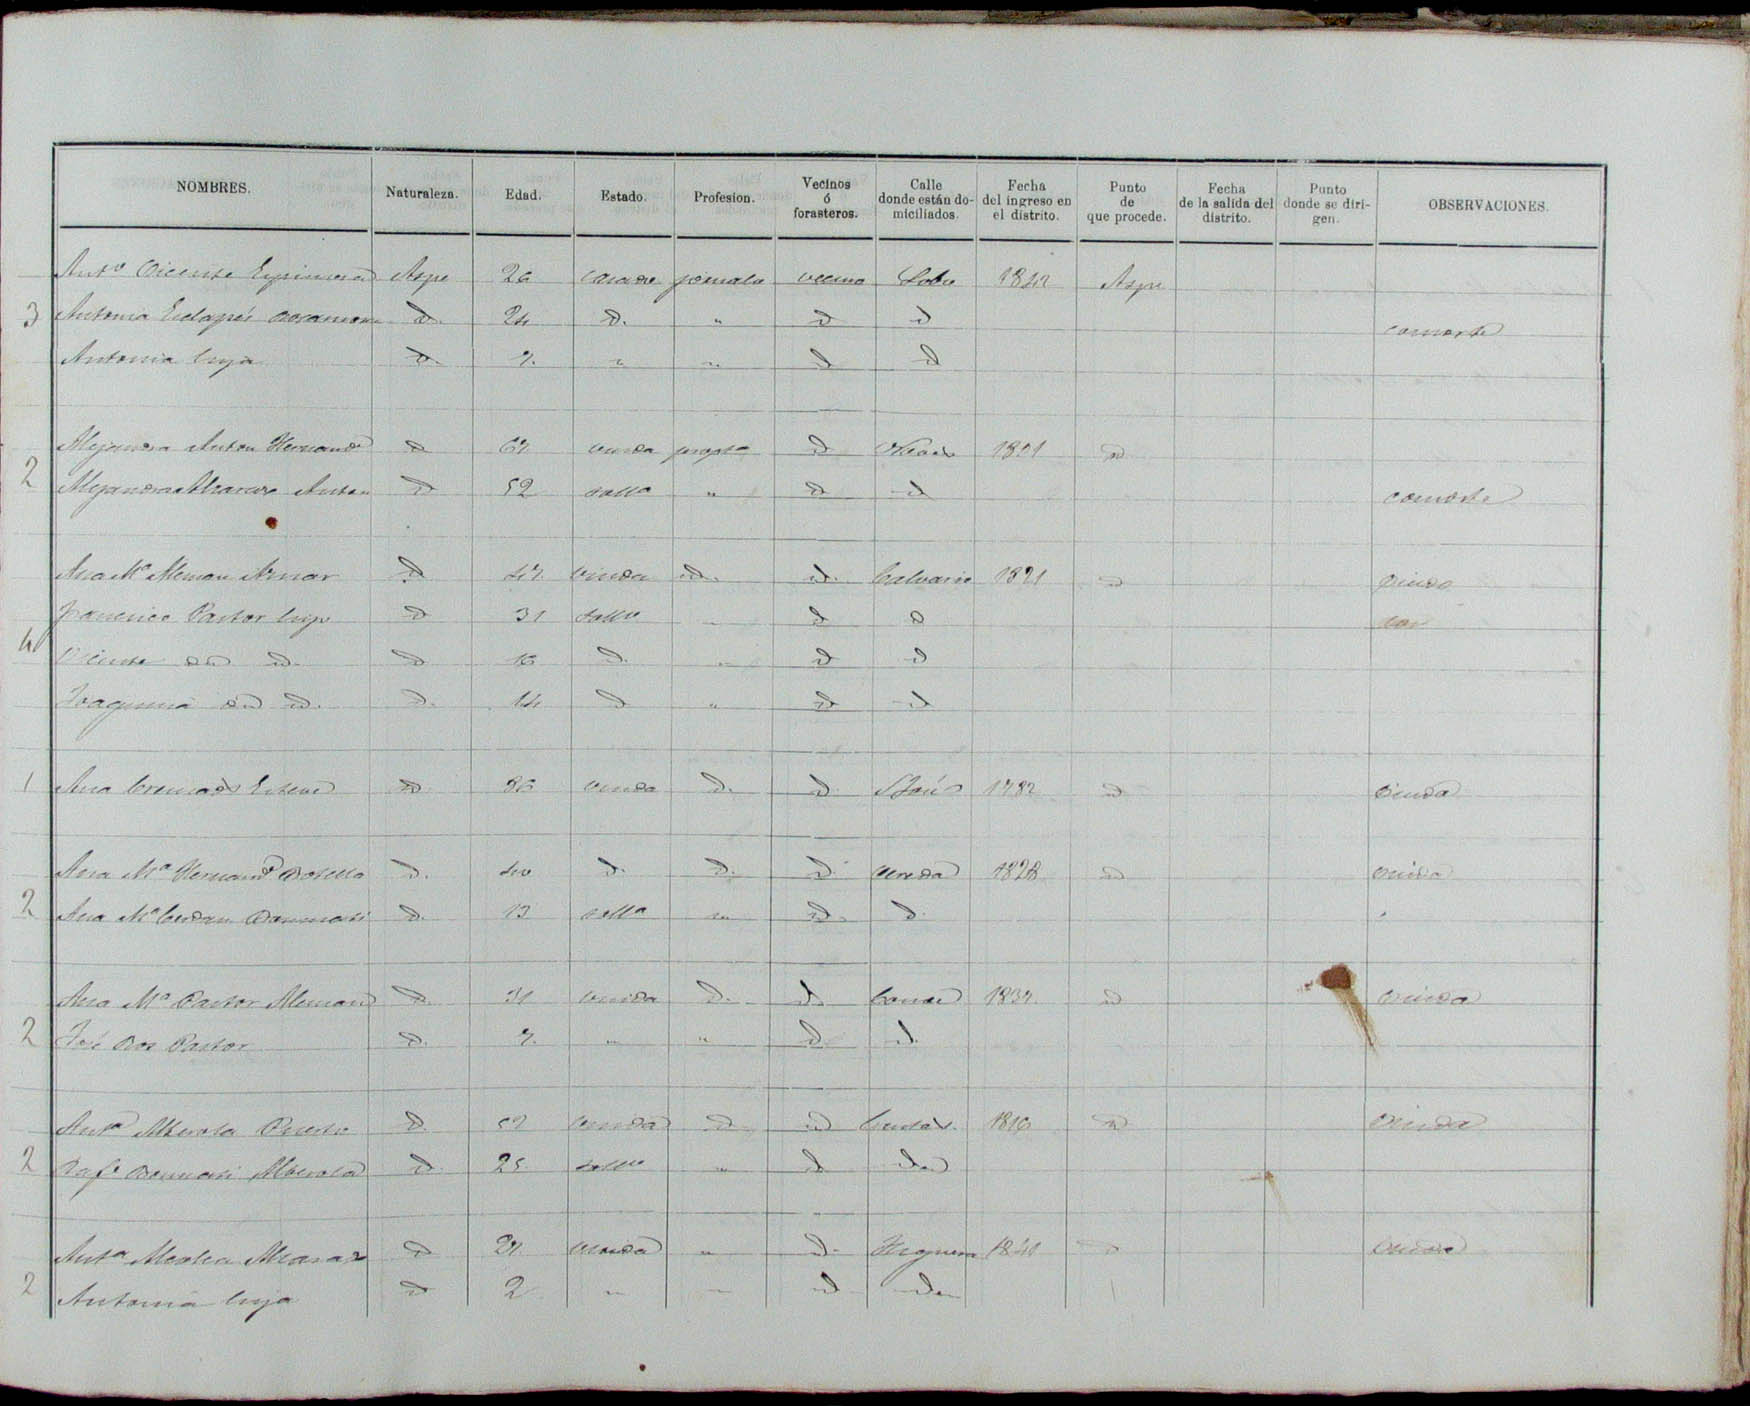 NOMBRES. Naturaleza. Edad. Estado. Profesion. Vecinos ó forasteros. Calle donde están domiciliados. Fecha del ingreso en el distrito. Punto de que procede. Fecha de la salida del distrito. Punto donde se dirigen. OBSERVACIONES.
Antº Vicente Aspe 26 casado vecino 184 Aspe
3 Antonia d. 24 d. " d d consorte
Antonia hija d. 7. " " d d
Anton Hernand d 67 viuda propta d 1801 d
2 Alejandra Anton d 52 solla " d d consorte
Ana Mª Aleman Aznar d 47 viuda d. d. Calvario 1821 d viuda
Francisco Pastor hijo d 31 sollo " d d
4 Vicente id d. d 16 d. " d d
Joaquina id d. d. 14 d " d d
1 Ana Cremades Esteve d. 86 viuda d. d. 1782 d viuda
Ana Mª Hernand Botella d. 40 d. d. d. Vereda 1828 d viuda
2 Ana Mª Cerdan d. 13 solla " d. d.
Ana Mª Pastor Aleman d. 31 viuda d. d. Conde 1837 d viuda
2 José Bos Pastor d. 7. " " d d.
Antª Alberola Puerto d. 52 viuda d. d 1810 d viuda
2 Rafl Bonmati Alberola d. 25. sollo " d d
Antª d 27. viuda " d. Higuera 1841 d viuda
2 Antonia hija d 2 " " d d